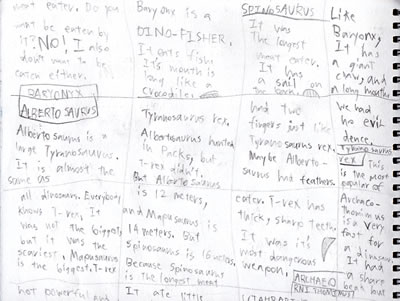 meat eater. Do you
want be eaten by
it? NO! I also
don't want to be
eaten either.
BARYONYX
Baryonx is a
DINO-FISHER.
It eats fish
It's mouth is
long like a
crocodile.
SPINOSAURUS
It was
the longest
meat eater.
It has
a sail on
the back.
Like
Baryonx,
It has
a giant
claw, and
a long mouth.
ALBERTOSAURUS
Albertosaurus is a
large Tyranosaurus.
It is almost the
same as
Tyranosaurus rex.
Albertosaurus hunted
in Packs, but
T-rex didn't.
But Albertosaurus
is 12 meters,
had two
fingers just like
Tyranosaurus rex.
Maybe Alberto-
saurus had feathers.
We had
no evi
dence.
Tyranosaurus
rex
This
is the most
popular of
all dinosaurs. Everybody
knows T-rex, It
was not the biggest,
but it was the
scariest. Mapusaurus
is the biggest. T-rex
and Mapusaurus is
14 meters. But
Spinosaurus is 16
Because Spinosaurus
is the longest meat
eater. T-rex has
thick, sharp teeth.
It was it's
most dangerous
weapon.
ARCHAEO
RNITHOMIMUS
Archaeo-
thomimus is
a very
fast for
a dinosaur.
It had
a sharp
beak but
not powerful and
It ate little